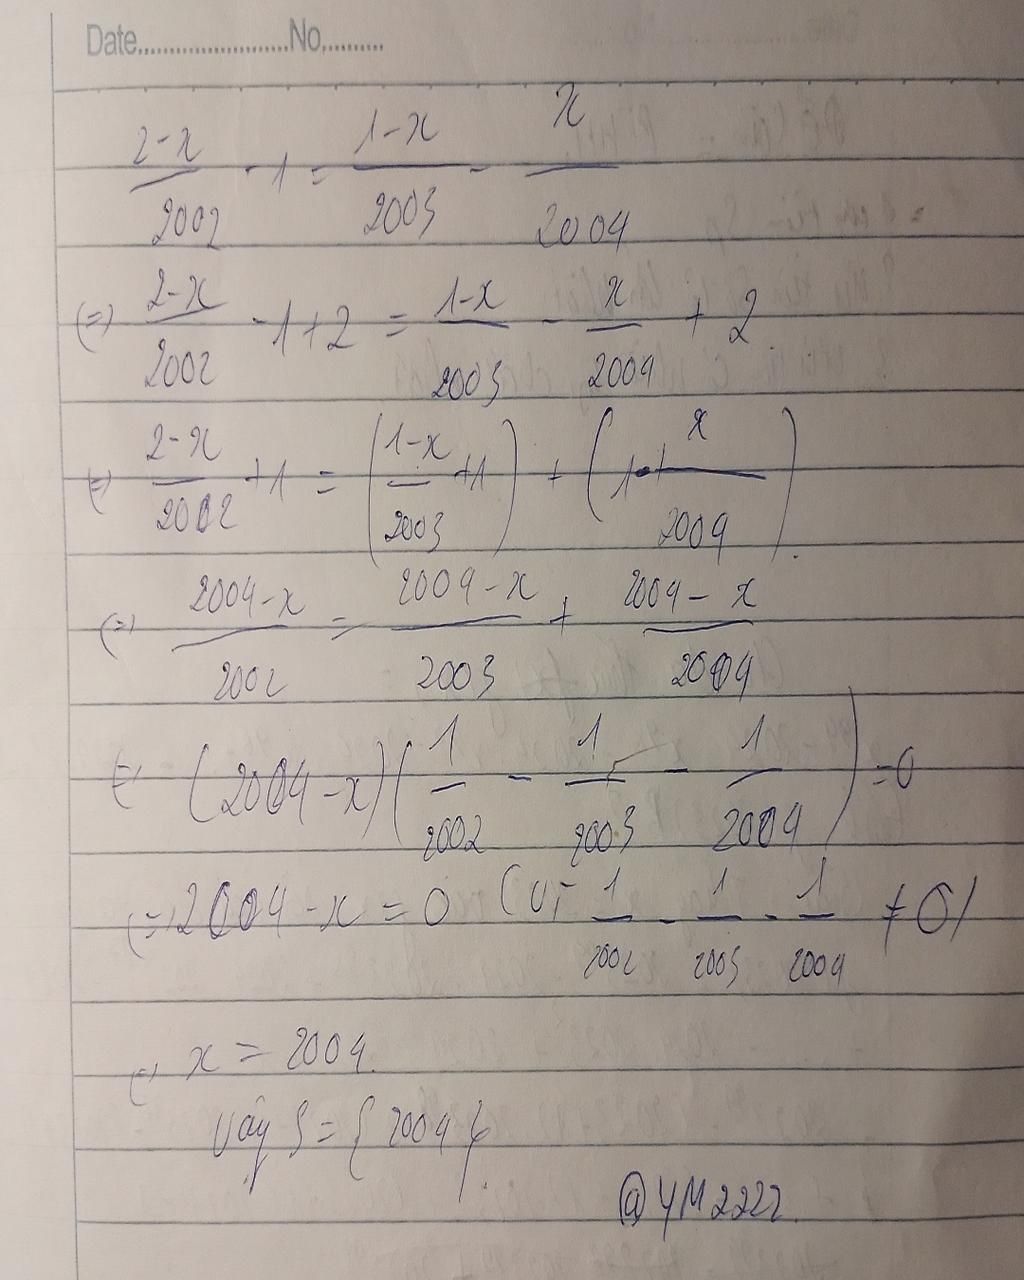 Date........................No..........
2-x/2002 - 1 = 1-x/2003 - x/2004
(=) 2-x/2002 - 1 + 2 = 1-x/2003 - x/2004 + 2
(=) 2-x/2002 + 1 = (1-x/2003 + 1) + (1 - x/2004)
(=) 2004-x/2002 = 2004-x/2003 + 2004-x/2004
(=) (2004-x)(1/2002 - 1/2003 - 1/2004) = 0
(=) 2004-x = 0 (vì 1/2002 - 1/2003 - 1/2004 ≠ 0)
(=) x = 2004.
Vậy S = {2004}.
@YM2222